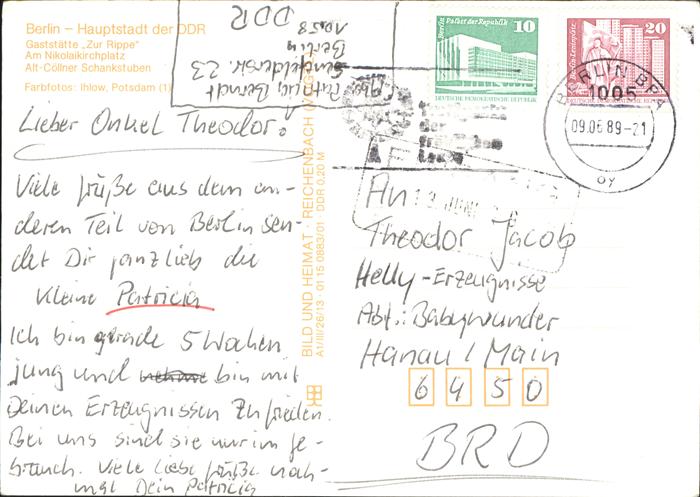 Berlin – Hauptstadt der DDR
Gaststätte „Zur Rippe"
Am Nikolaikirchplatz
Alt-Cöllner Schankstuben
Farbfotos: Ihlow, Potsdam (1)
Abs. Patricia Berndt
23
Berlin
1058
DDR
Lieber Onkel Theodor.
Viele Grüße aus dem an-
deren Teil von Berlin sen-
det Dir ganz lieb die
kleine Patricia
Ich bin gerade 5 Wochen
jung und bin mit
Deinen Erzeugnissen zufrieden.
Bei uns sind sie nur im Ge-
brauch. Viele liebe Grüße noch-
mal Dein Patricia
BILD UND HEIMAT · REICHENBACH
A1/III/26/13 · 01 15 0883/01 DDR 0,20 M
Berlin, Palast der Republik
10
DEUTSCHE DEMOKRATISCHE REPUBLIK
Berlin, Leninplatz
20
DEUTSCHE DEMOKRATISCHE REPUBLIK
BERLIN BPA
1005
09.06.89-21
oy
13. JUNI
An
Theodor Jacob
Helly-Erzeugnisse
Abt.: Babywunder
Hanau / Main
6450
BRD